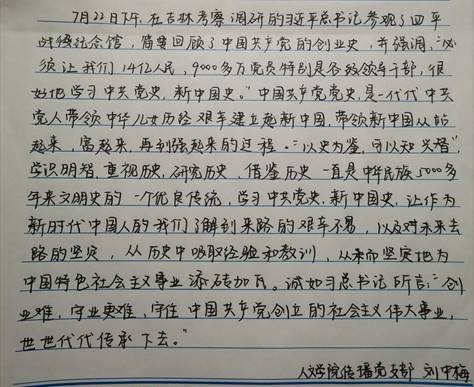 7月22日下午,在吉林考察调研的习近平总书记参观了四平
战役纪念馆,简要回顾了中国共产党的创业史,并强调:“必
须让我们14亿人民,9000多万党员特别是各级领导干部,很
好地学习中共党史,新中国史。”中国共产党党史,是一代代中共
党人带领中华儿女历经艰辛建立起新中国,带领新中国从站
起来,富起来,再到强起来的过程。“以史为鉴,可以知兴替”,
学识明智,重视历史,研究历史,借鉴历史一直是中华民族5000多
年来文明史的一个优良传统,学习中共党史,新中国史,让作为
新时代中国人的我们了解到来路的艰辛不易,以及对未来去
路的坚定,从历史中吸取经验和教训,从来而坚定地为
中国特色社会主义事业添砖加瓦。诚如习总书记所言:“创
业难,守业更难,守住中国共产党创立的社会主义伟大事业,
世世代代传承下去。”
人文学院传播党支部 刘中梅